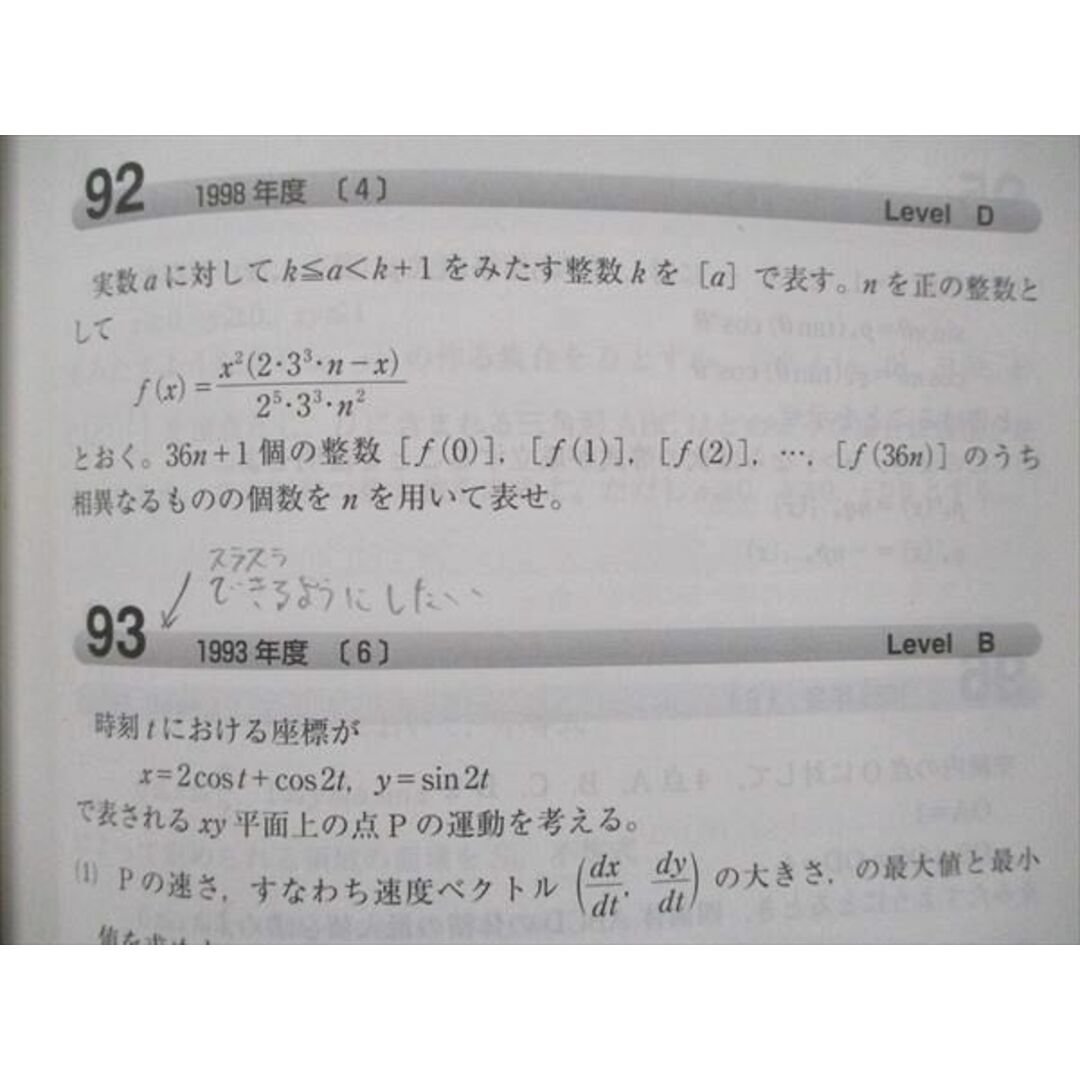 92 1998年度 〔4〕 Level D
実数aに対してk≦a<k+1をみたす整数kを[a]で表す。nを正の整数と
して
f(x)=x²(2・3³・n−x)/2⁵・3³・n²
とおく。36n+1個の整数[f(0)],[f(1)],[f(2)],…,[f(36n)]のうち
相異なるものの個数をnを用いて表せ。
スラスラ
できるようにしたい
93 1993年度 〔6〕 Level B
時刻tにおける座標が
x=2cost+cos2t, y=sin2t
で表されるxy平面上の点Pの運動を考える。
(1) Pの速さ,すなわち速度ベクトル(dx/dt, dy/dt)の大きさ,の最大値と最小